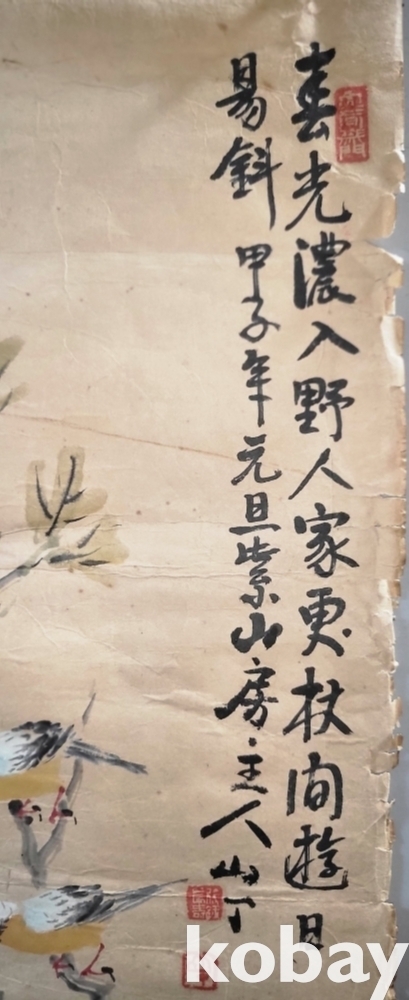 春光濃入野人家更杖間遊日
易斜 甲子年元旦紫山房主人山丁
kobay